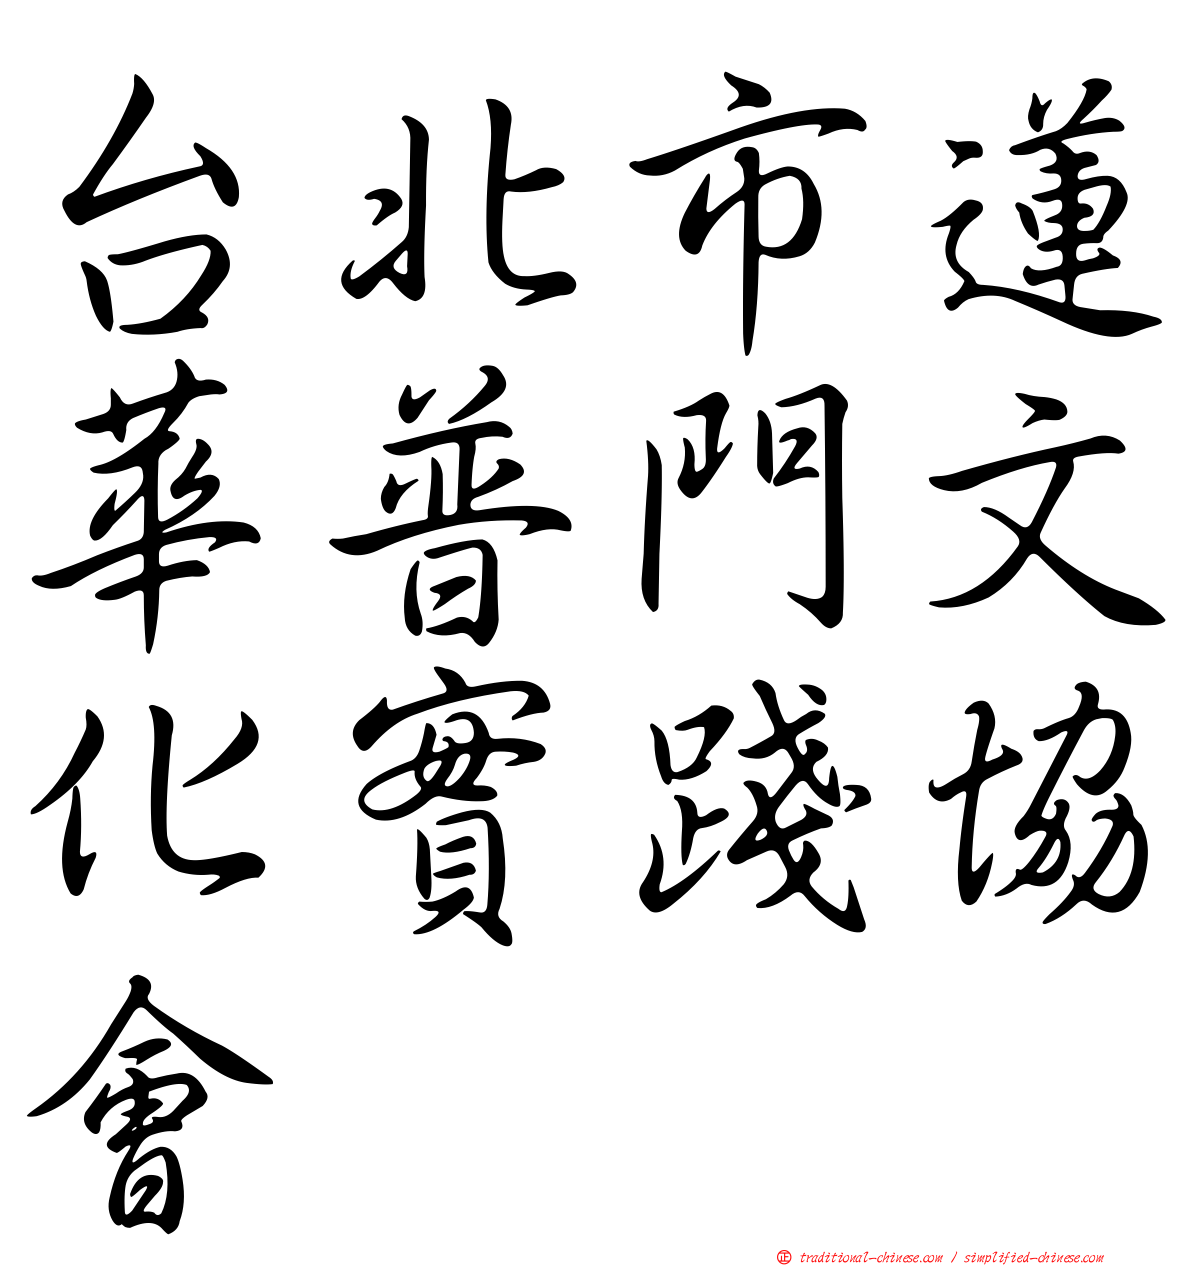 台北市蓮
華普門文
化實踐協
會
正 traditional-chinese.com / simplified-chinese.com